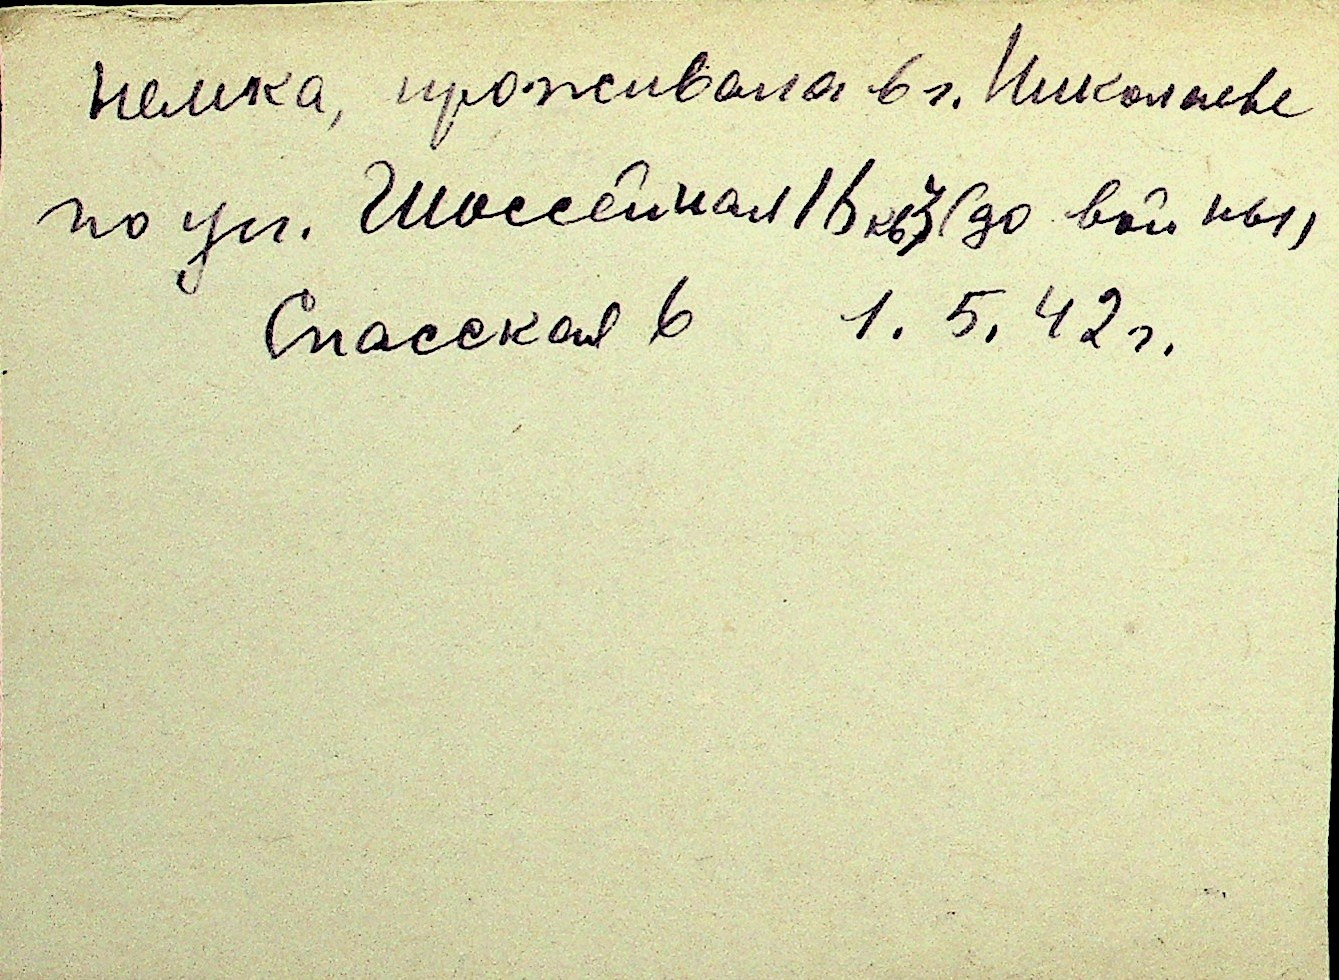 немка, проживала в г. Николаеве
по ул. Шоссейная 1 кв 3 (до войны)
Спасская 6 1. 5. 42 г.